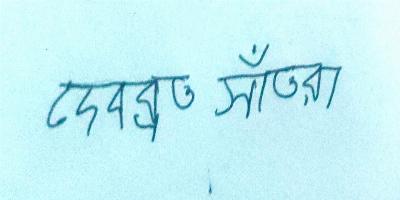 দেবব্রত সাঁতরা